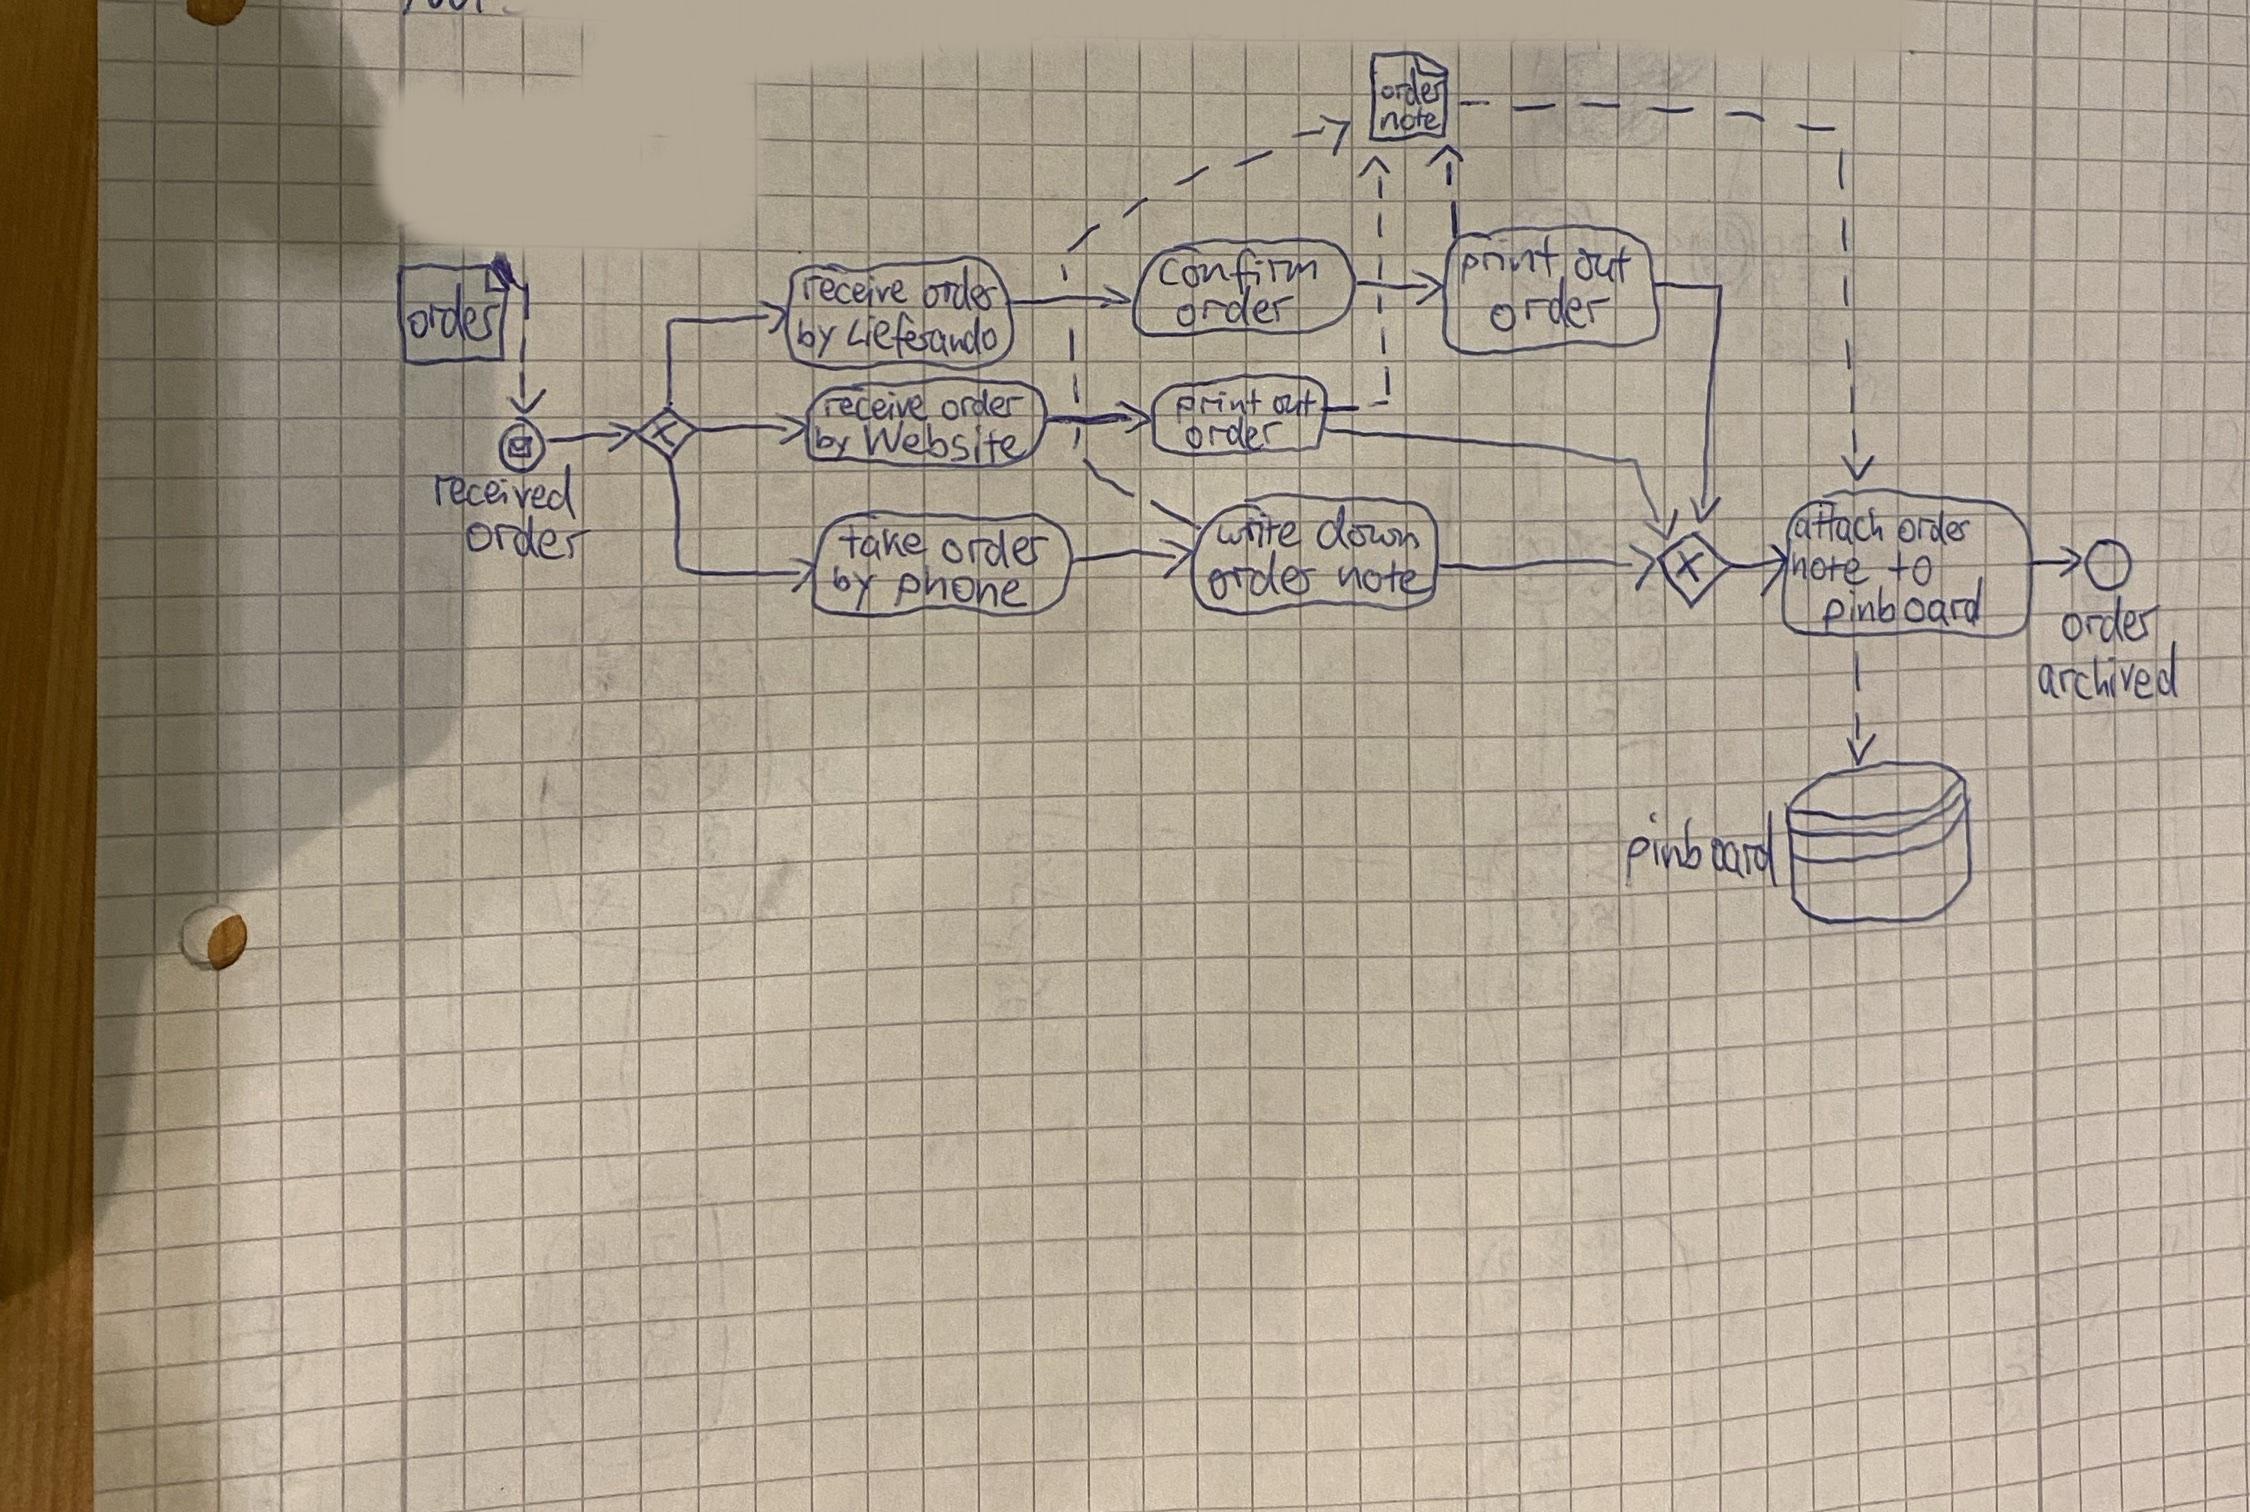 order
note
order
received
order
receive order
by Lieferando
confirm
order
print out
order
receive order
by Website
print out
order
take order
by phone
write down
order note
attach order
note to
pinboard
order
archived
pinboard